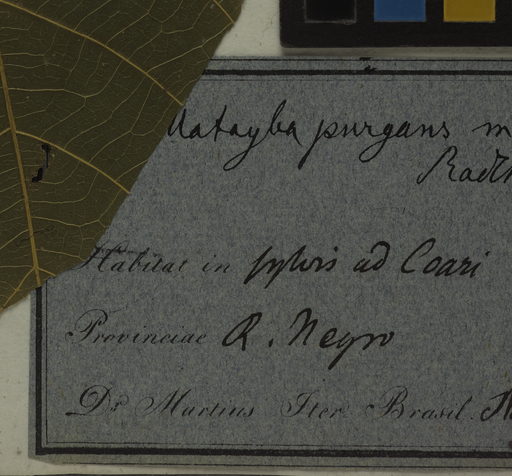 Matayba purgans m
Radlk
Habitat in sylvis ad Coari
Provinciae R. Negro
Dr Martius Iter Brasil.